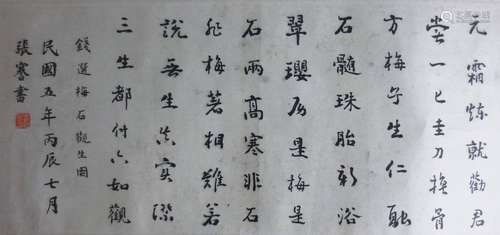 元霜煉就勸君
嘗一匕圭刀換骨
方梅字生仁融
石髓珠胎新浴
翠瓔為是梅是
石兩高寒非石
非梅著相難著
說無生真實際
三生都付六如觀
錢選梅石觀生圖
民國五年丙辰七月
張謇書